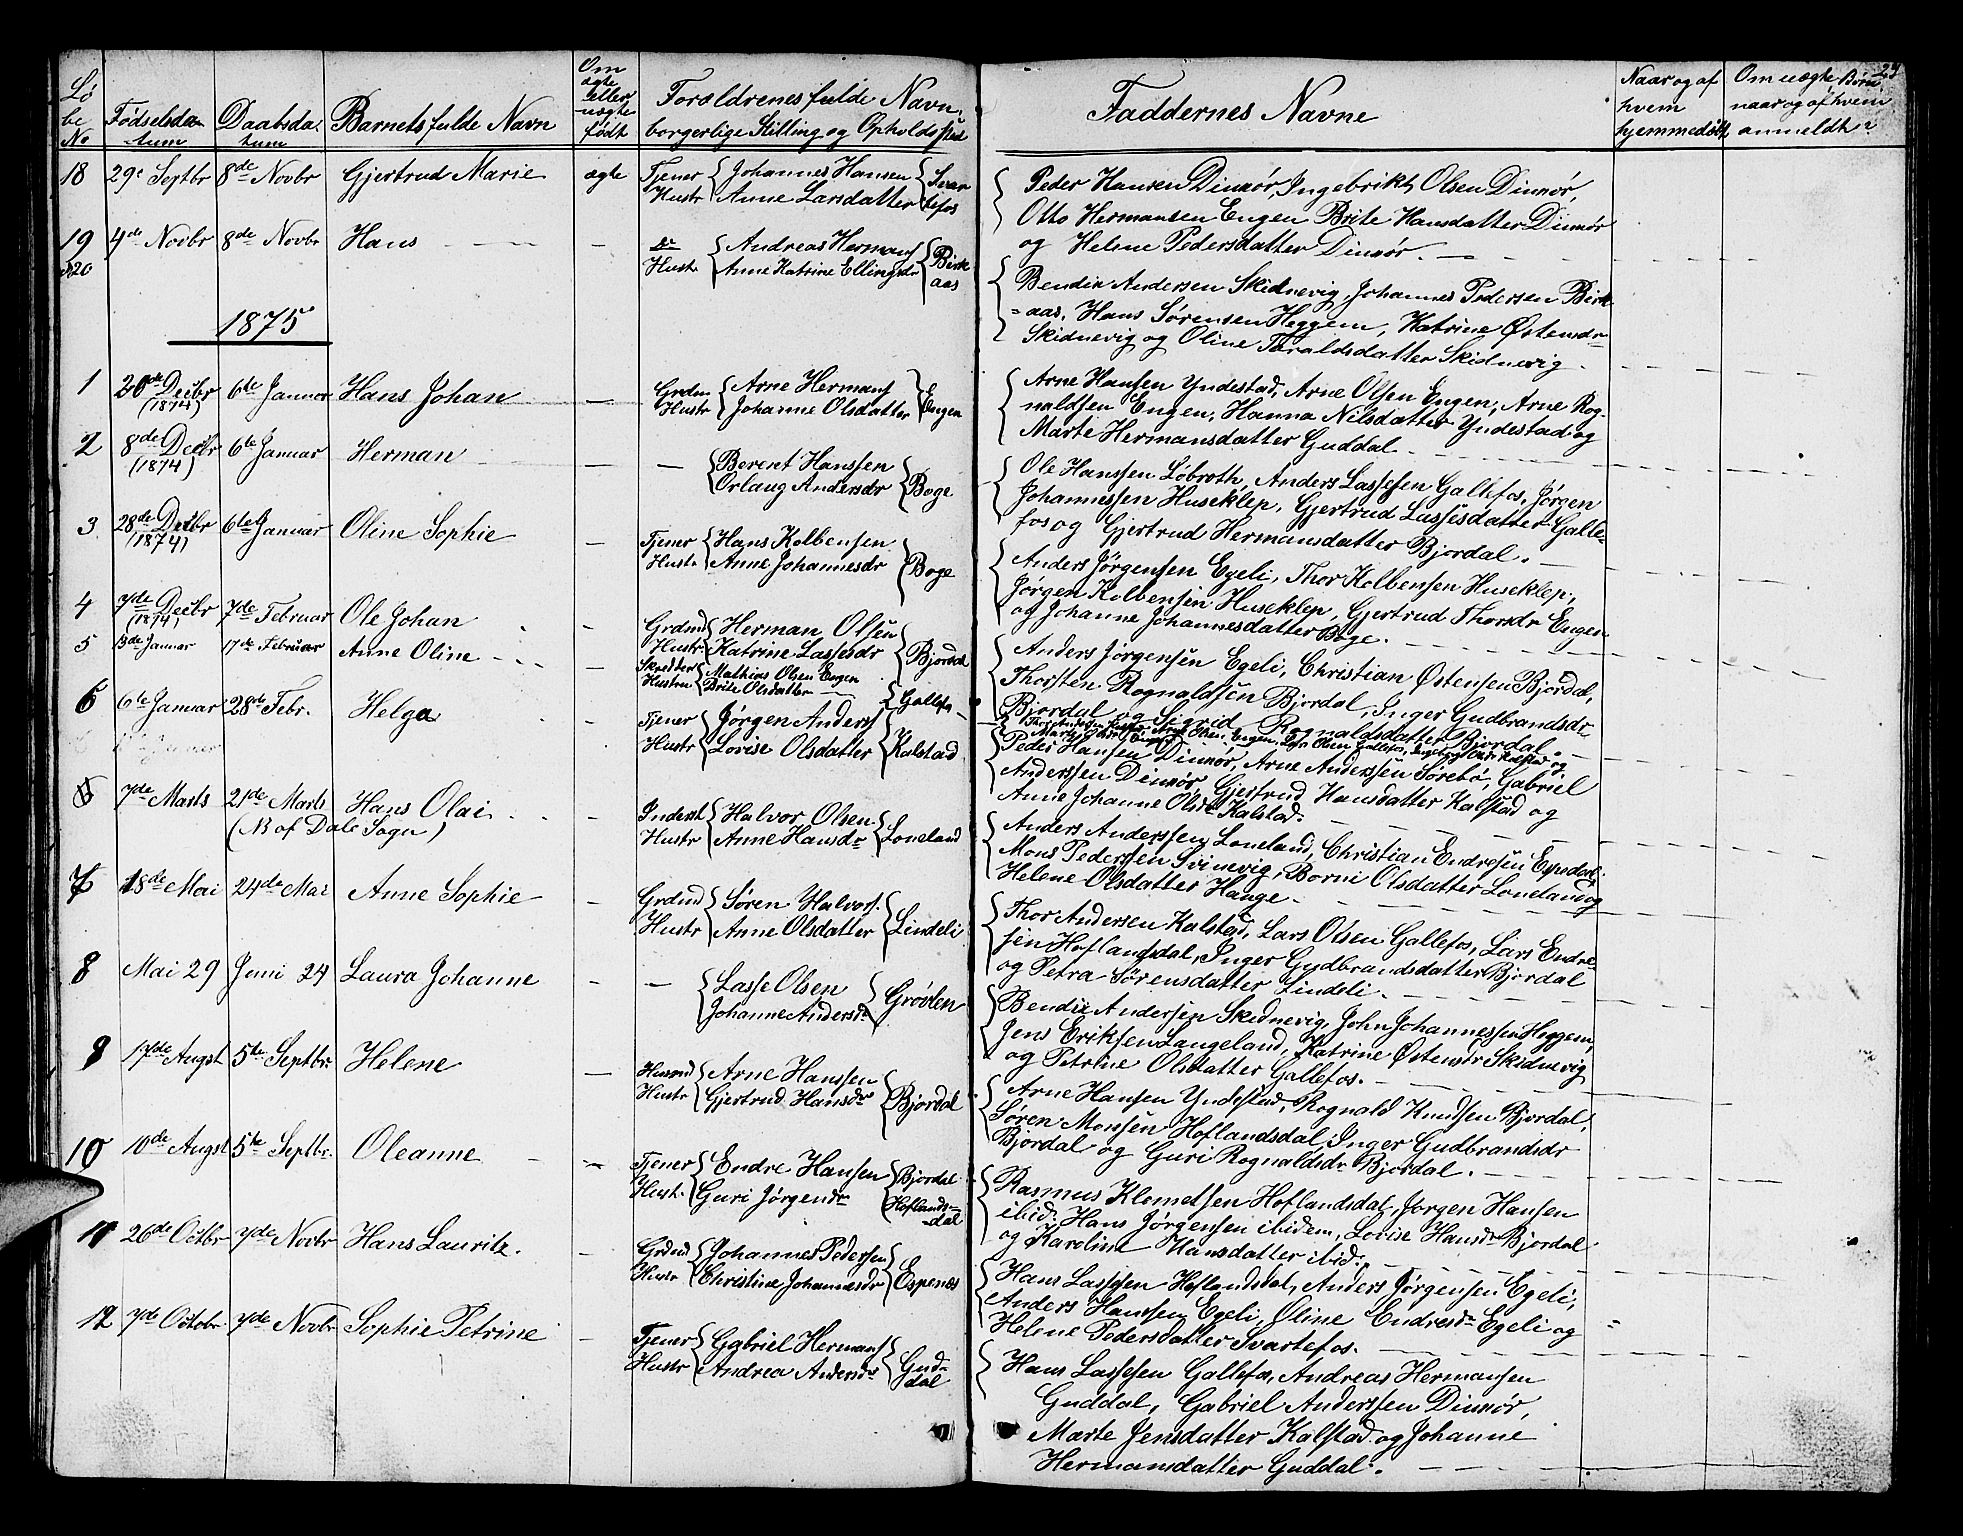 29
Lö be No
Födselsda= tum
Daabsda= tum
Barnets fulde Navn
Om ægte eller uægte født
Forældrenes fulde Navn, borgerlige Stilling og Opholdssted
Faddernes Navne
Naar og af hvem hjemmedöbt
Om uægte Börn naar og af hvem anmeldt?
18 29e Septbr 8de Novbr Gjertrud Marie ægte Tjener Johannes Hansen Svar
Hustr Anne Larsdatter tefos
Peder Hansen Dinmör, Ingebrikt Olsen Dinmör,
Otto Hermansen Engen Brite Hansdatter Dinmör
og Helene Pedersdatter Dinmör.
19 4de Novbr 8de Novbr Hans
Andreas Hermans Birk
Hustr Anne Katrine Ellingsdr aas
Bendix Andersen Skidnevig, Johannes Pedersen Birk
=aas, Hans Sörensen Heggem, Katrine Östensdr
Skidnevig og Oline Taraldsdatter Skidnevig
1875
1 20de Decbr (1874) 6te Januar Hans Johan
Grdm Arne Hermans Engen
Hustr Johanne Olsdatter
Arne Hansen Yndestad, Arne Olsen Engen, Arne Rog-
naldsen Engen, Hanna Nilsdatter Yndestad og
Marte Hermansdatter Guddal
2 8de Decbr (1874) 6te Januar Herman
Berent Hanssen Boge
Orlaug Andersdr
Ole Hanssen Löbroth, Anders Lassesen Gallefos, Jörgen
Johannessen Huseklep, Gjertrud Lassesdatter Galle-
fos og Gjertrud Hermansdatter Bjordal.
3 28de Decbr (1874) 6te Januar Oline Sophie
Tjener Hans Kolbensen Boge
Hustr Anne Johannesdr
Anders Jörgensen Egeli, Thor Kolbensen Huseklep,
Jörgen Kolbensen Huseklep, Gjertrud Thorsdr Engen
og Johanne Johannesdatter Boge.
4 7de Decbr (1874) 7de Februar Ole Johan
Grdmd Herman Olsen Bjordal
Hustr Katrine Lassesdr
Anders Jörgensen Egeli, Christian Östensen Bjordal,
Thorsten Rognaldsen Bjordal, Inger Gudbrandsdr
Bjordal og Sigrid Rognaldsdatter Bjordal.
5 13de Januar 17de Februar Anne Oline
Skrædder Mathias Olsen Engen Gallefos
Hustru Brite Olsdatter
6 6te Januar 28de Febr. Helga
Tjener Jörgen Anders Kalstad
Hustr Lovise Olsdatter
Peder Hansen Dinmör, Arne Anderssen Sörebö, Gabriel
Anderssen Dinmör, Gjertrud Hansdatter Kalstad og
Anne Johanne Olsdr Kalstad
7de Marts 21de Marts Hans Olai
(NB af Dale Sogn)
Inderst Halvor Olsen Loneland
Hustr Anne Hansdr
Anders Anderssen Loneland, Christian Endresen Espedal,
Mons Pederssen Svinevig, Borni Olsdatter Loneland og
Helene Olsdatter Hauge.
7 18de Mai 24de Mai Anne Sophie
Grdmd Sören Halvors. Lindeli
Hustr Anne Olsdatter
Thor Andersen Kalstad, Lars Olsen Gallefos, Lars Endre-
sen Hoflandsdal, Inger Gudbrandsdatter Bjordal
og Petra Sörensdatter Lindeli.
8 Mai 29 Juni 24 Laura Johanne
Lasse Olsen Grövlen
Johanne Andersdr
Bendix Andersen Skidnevig, John Johannessen Heggem,
Jens Eriksen Langeland, Katrine Östensdr Skidnevig
og Petrine Olsdatter Gallefos.
9 17de Augst 5te Septbr. Helene
Husmd Arne Hanssen Bjordal
Hustr Gjertrud Hansdr
Arne Hansen Yndestad, Rognald Knudsen Bjordal,
Sören Monsen Hoflandsdal, Inger Gudbrandsdr
Bjordal og Guri Rognaldsdr Bjordal.
10 10de Augst 5te Septbr. Oleanne
Tjener Endre Hansen Bjordal
Hustr. Guri Jörgensdr Hoflands-dal
Rasmus Klemetsen Hoflandsdal, Jörgen Hansen
ibid. Hans Jörgensen ibidem, Lovise Hansdr Bjordal
og Karoline Hansdatter ibid.
11 26de Octbr 7de Novbr Hans Lauritz.
Grdmd Johannes Pedersen Espenes
Hustr Christine Johannesdr
Hans Lassesen Hoflandsdal, Anders Jörgensen Egeli,
Anders Hanssen Egeli, Oline Endresdr Egeli og
Helene Pedersdatter Svartefos.
12 7de Octobr 7de Novbr Sophie Petrine
Tjener Gabriel Hermans Gud-
Hustr Andrea Andersdr dal
Hans Lassesen Gallefos, Andreas Hermansen
Guddal, Gabriel Anderssen Dinmör,
Marte Jensdatter Kalstad og Johanne
Hermansdatter Guddal.